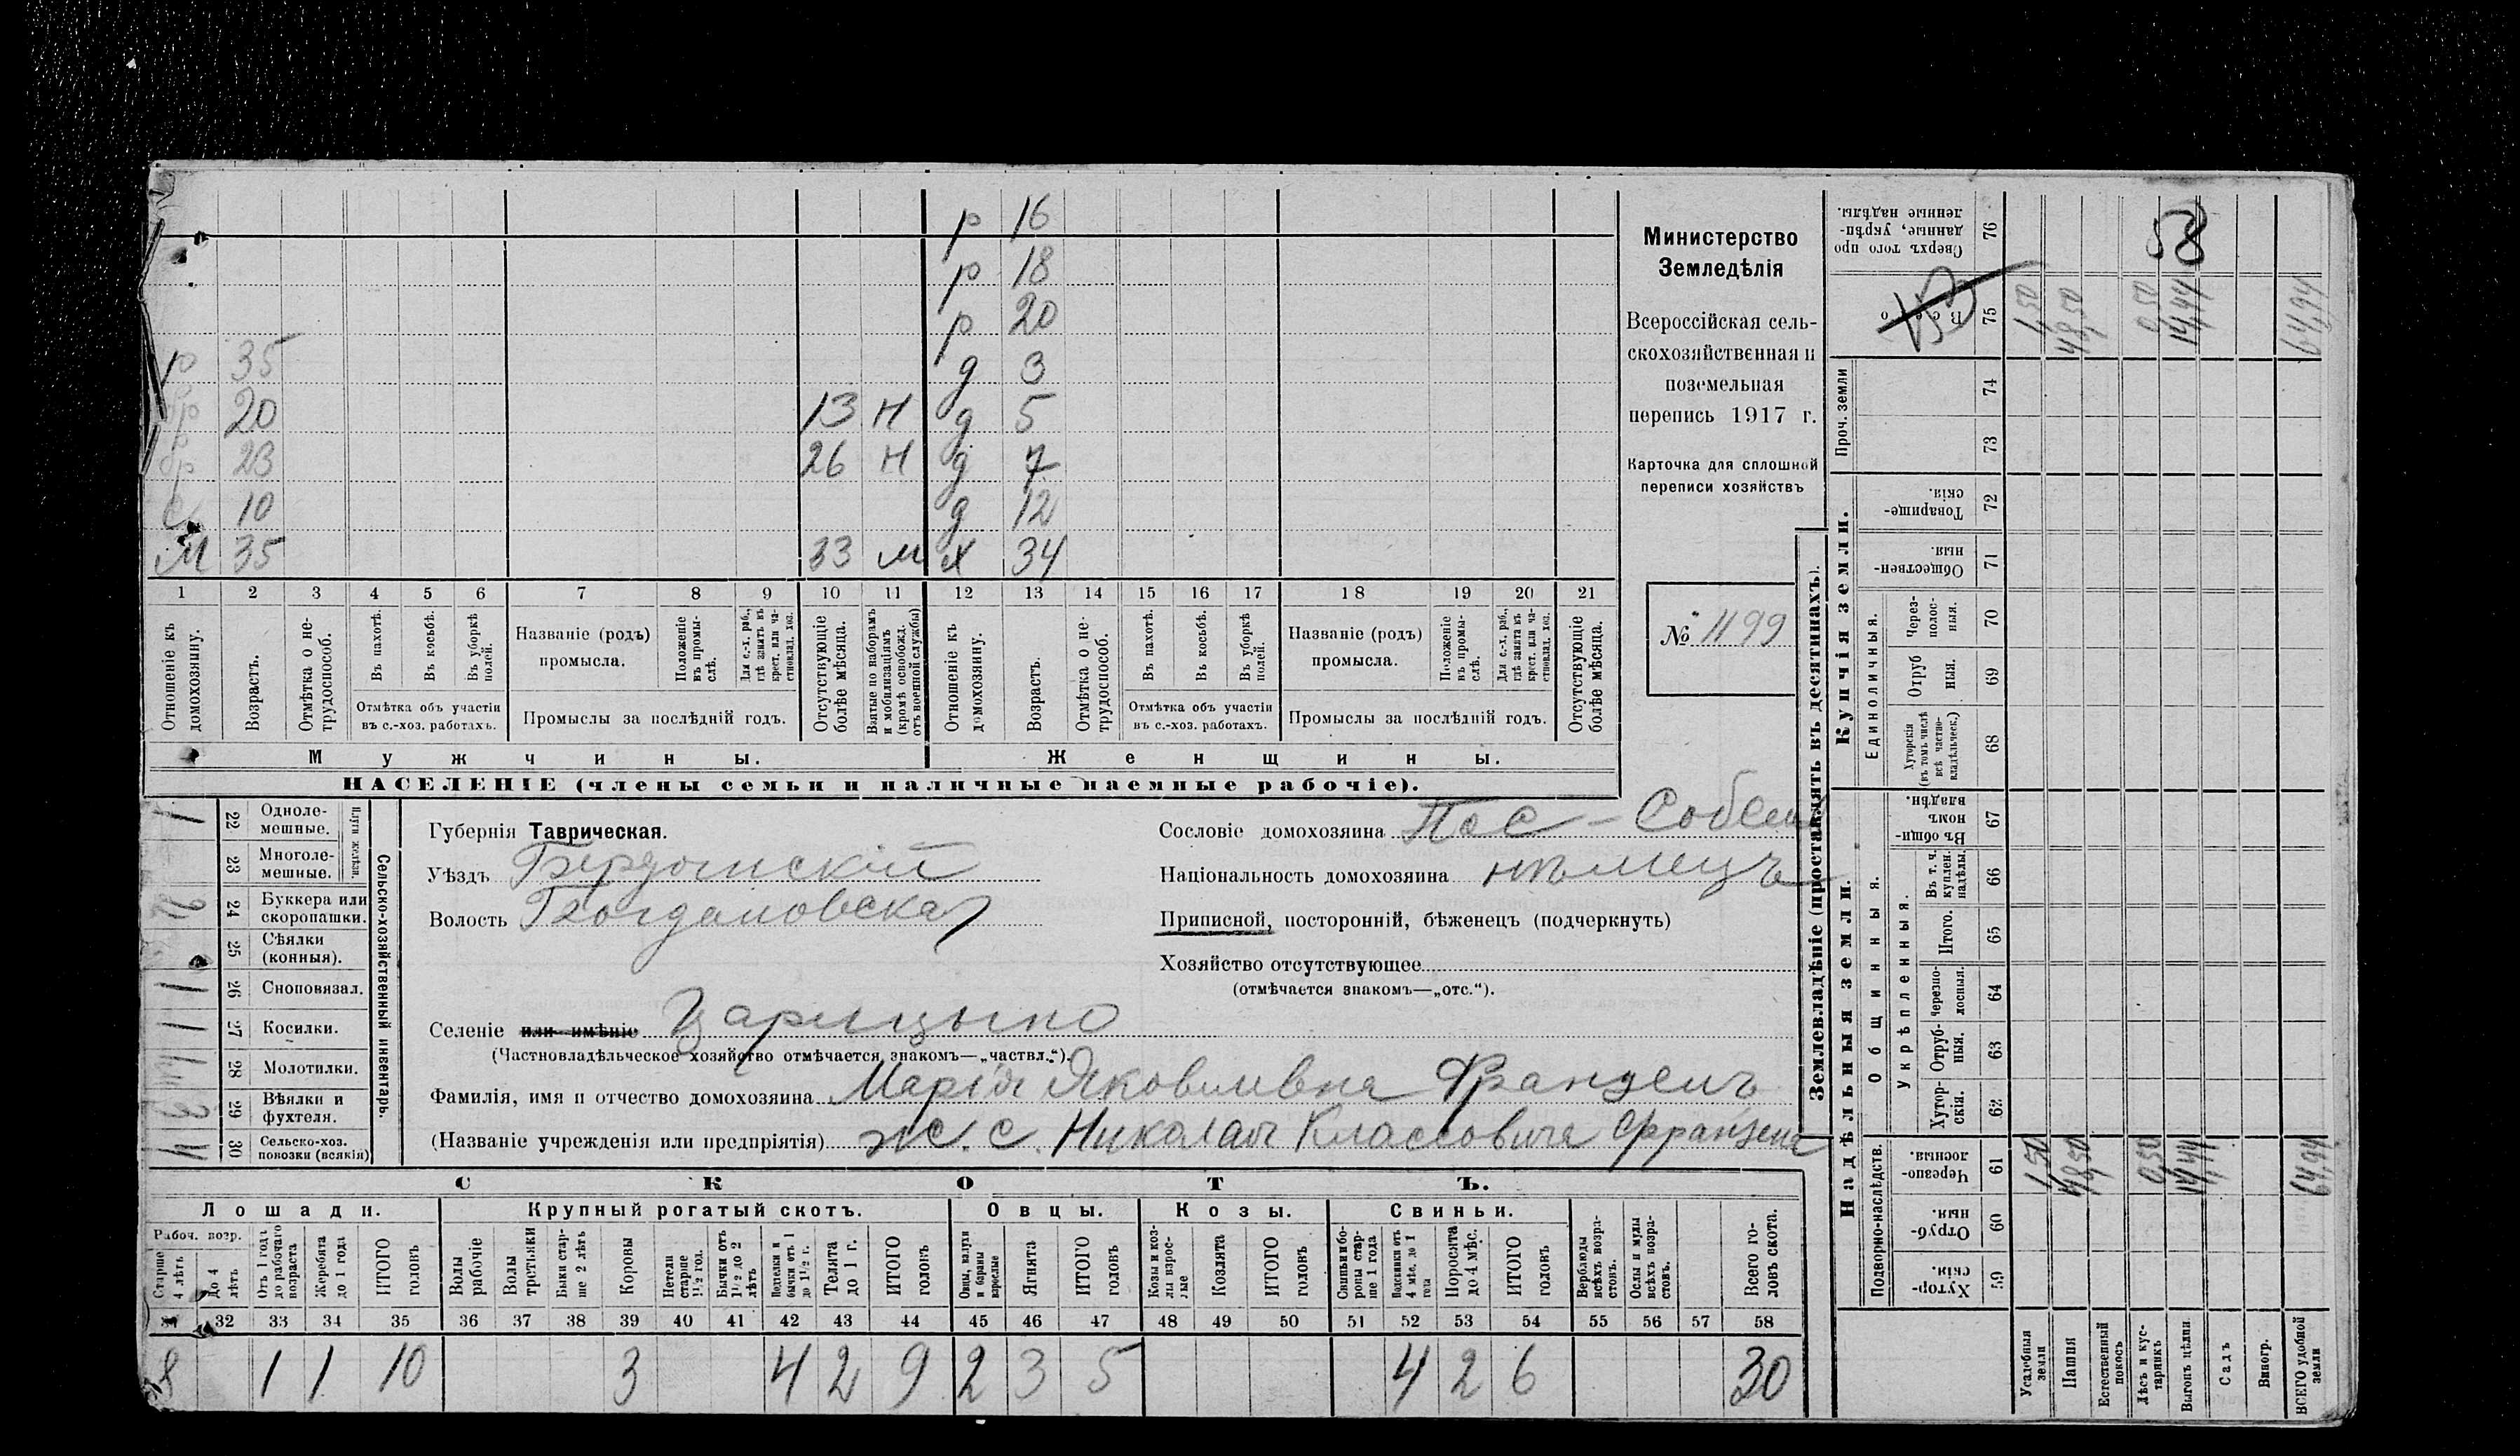 р 16
р 18
р 20
р 35 д 3
бр 20 13 Н д 5
бр 23 26 Н д 7
с 10 д 12
М 35 33 м х 34
1 2 3 4 5 6 7 8 9 10 11 12 13 14 15 16 17 18 19 20 21
Отношеніе къ домохозяину.
Возрастъ.
Отмѣтка о не-трудоспособ.
Въ пахотѣ.
Въ косьбѣ.
Въ уборкѣ полей.
Отмѣтка объ участіи
въ с.-хоз. работахъ.
Названіе (родъ)
промысла.
Положеніе въ промы-слѣ.
Для с.-х. раб., гдѣ занятъ въ крест. или ча-стновлад. хоз.
Промыслы за послѣдній годъ.
Отсутствующіе болѣе мѣсяца.
Взятые по наборамъ и мобилизаціямъ (кромѣ освобожд. отъ военной службы)
Отношеніе къ домохозяину.
Возрастъ.
Отмѣтка о не-трудоспособ.
Въ пахотѣ.
Въ косьбѣ.
Въ уборкѣ полей.
Отмѣтка объ участіи
въ с.-хоз. работахъ.
Названіе (родъ)
промысла.
Положеніе въ промы-слѣ.
Для с.-х. раб., гдѣ занята въ крест. или ча-стновлад. хоз.
Промыслы за послѣдній годъ.
Отсутствующіе болѣе мѣсяца.
Мужчины. Женщины.
НАСЕЛЕНІЕ (члены семьи и наличные наемные рабочіе).
Министерство
Земледѣлія
Всероссійская сель-
скохозяйственная и
поземельная
перепись 1917 г.
Карточка для сплошной
переписи хозяйствъ
№ 1199
Сельско-хозяйственный инвентарь.
Плуги желѣзн.
1 22 Одноле-мешные.
23 Многоле-мешные.
2 24 Буккера или скоропашки.
25 Сѣялки (конныя).
1 26 Сноповязал.
1 27 Косилки.
28 Молотилки.
29 Вѣялки и фухтеля.
4 30 Сельско-хоз. повозки (всякія)
Губернія Таврическая.
Уѣздъ Бердянскій
Волость Богдановская
Селеніе или имѣніе Царицыно
(Частновладѣльческое хозяйство отмѣчается знакомъ—„частвл.“).
Фамилія, имя и отчество домохозяина Марія Яковлевна Францевъ
(Названіе учрежденія или предпріятія) ж. с. Николая Классовича Францена
Сословіе домохозяина Пос - Собств
Національность домохозяина нѣмецъ
Приписной, посторонній, бѣженецъ (подчеркнуть)
Хозяйство отсутствующее
(отмѣчается знакомъ—„отс.“).
СКОТЪ.
Лошади. Крупный рогатый скотъ. Овцы. Козы. Свиньи.
Рабоч. возр.
Старше 4 лѣтъ
До 4 лѣтъ
Отъ 1 года до рабочаго возраста
Жеребята до 1 года
ИТОГО головъ
Волы рабочіе
Волы третьяки
Быки стар-ше 2 лѣтъ
Коровы
Нетели старше 1½ год.
Бычки отъ 1½ до 2 лѣтъ
Подтелки и бычки отъ 1 до 1½ г.
Телята до 1 г.
ИТОГО головъ
Овцы, валухи и бараны взрослые
Ягнята
ИТОГО головъ
Козы и коз-лы взрос-лые
Козлята
ИТОГО головъ
Свиньи и бо-ровы стар-ше 1 года
Подсвинки отъ 4 мѣс. до 1 года
Поросята до 4 мѣс.
ИТОГО головъ
Верблюды всѣхъ возра-стовъ.
Ослы и мулы всѣхъ возра-стовъ.
Всего го-ловъ скота.
31 32 33 34 35 36 37 38 39 40 41 42 43 44 45 46 47 48 49 50 51 52 53 54 55 56 57 58
8 1 1 10 3 4 2 9 2 3 5 4 2 6 30
Землевладѣніе (проставлять въ десятинахъ).
Купчія земли.
Надѣльныя земли.
Проч. земли
Единоличныя.
Общинныя.
Укрѣпленныя.
Подворно-наслѣдств.
Сверхъ того про данные, укрѣп-ленные надѣлы. 76 58
Всего 75 1,50 48,50 0,50 14,44 64,94
74
73
Товарище-скія. 72
Обществен-ныя. 71
Через-полос-ныя. 70
Отруб ныя. 69
Хуторскія (въ томъ числѣ всѣ частно-владѣльческ.) 68
Въ общи-номъ владѣн. 67
Въ т. ч. куплен. надѣлы. 66
Итого. 65
Черезпо-лосныя. 64
Отруб-ныя. 63
Хутор-скія. 62
Черезпо-лосныя. 61 1,50 48,50 0,50 14,44 64,94
Отруб-ныя. 60
Хутор-скія. 59
Усадебныя земли
Пашня
Естественный покосъ
Лѣсъ и кус-тарникъ
Выгонъ цѣлин.
Садъ
Виногр.
ВСЕГО удобной земли